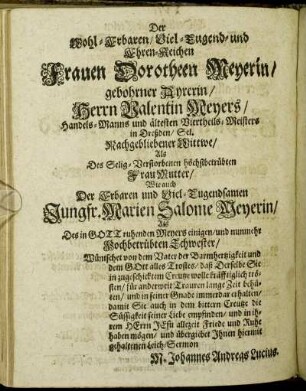 Der
Wohl-Erbaren/ Viel-Tugend- und
Ehren-Reichen
Frauen Dorotheen Meyerin/
gebohrner Ayrerin/
Herrn Valentin Meyers/
Handels-Manns und ältesten Viertheils-Meisters
in Dreßden/ Sel.
Nachgebliebener Wittwe/
Als
Des Selig-Verstorbenen höchstbetrübten
Frau Mutter/
Wie auch
Der Erbaren und Viel-Tugendsamen
Jungfr. Marien Salome Meyerin/
Als
Des in GOTT ruhenden Meyers einigen/ und nunmehr
Hochbetrübten Schwester/
Wünschet von dem Vater der Barmhertzigkeit und
dem GOtt alles Trostes/ daß Derselbe Sie
in zugeschicktem Creutze wolle kräfftiglich trö-
sten/ für anderweit Trauren lange Zeit behü-
ten/ und in seiner Gnade immerdar erhalten/
damit Sie auch in dem bittern Creutze die
Süssigkeit seiner Liebe empfinden/ und in ih-
rem HErrn JEsu allezeit Friede und Ruhe
haben mögen/ und übergiebet Ihnen hiermit
gehaltenen Leich-Sermon
M. Johannes Andreas Lucius.